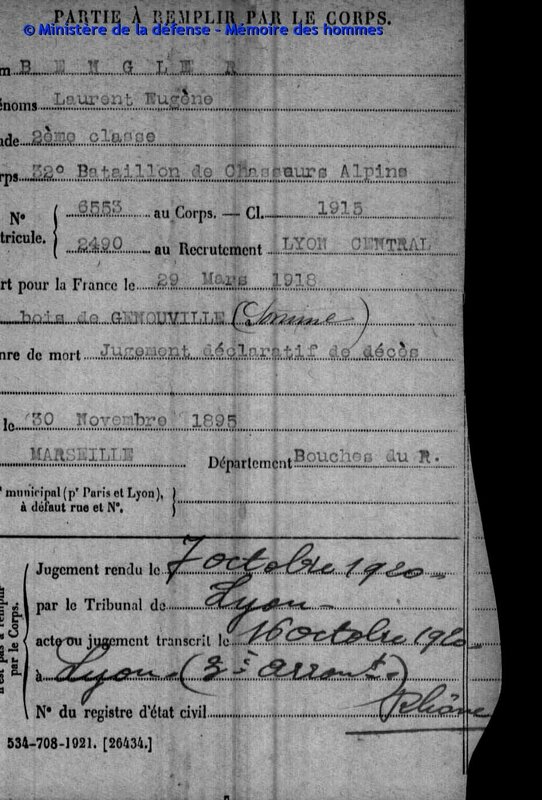 PARTIE À REMPLIR PAR LE CORPS.
© Ministère de la défense - Mémoire des hommes
m BENGLER
énoms Laurent Eugène
ade 2ème classe
rps 32° Bataillon de Chasseurs Alpins
N° 6553 au Corps. — Cl. 1915
tricule. 2490 au Recrutement LYON CENTRAL
rt pour la France le 29 Mars 1918
bois de GENOUVILLE (Somme)
nre de mort Jugement déclaratif de décès
le 30 Novembre 1895
MARSEILLE Département Bouches du R.
municipal (pr Paris et Lyon),
à défaut rue et N°.
Jugement rendu le 7 octobre 1920
par le Tribunal de Lyon
acte ou jugement transcrit le 16 octobre 1920
à Lyon (2e arront)
Rhône
N° du registre d'état civil
n'est pas à remplir
par le Corps.
534-708-1921. [26434.]